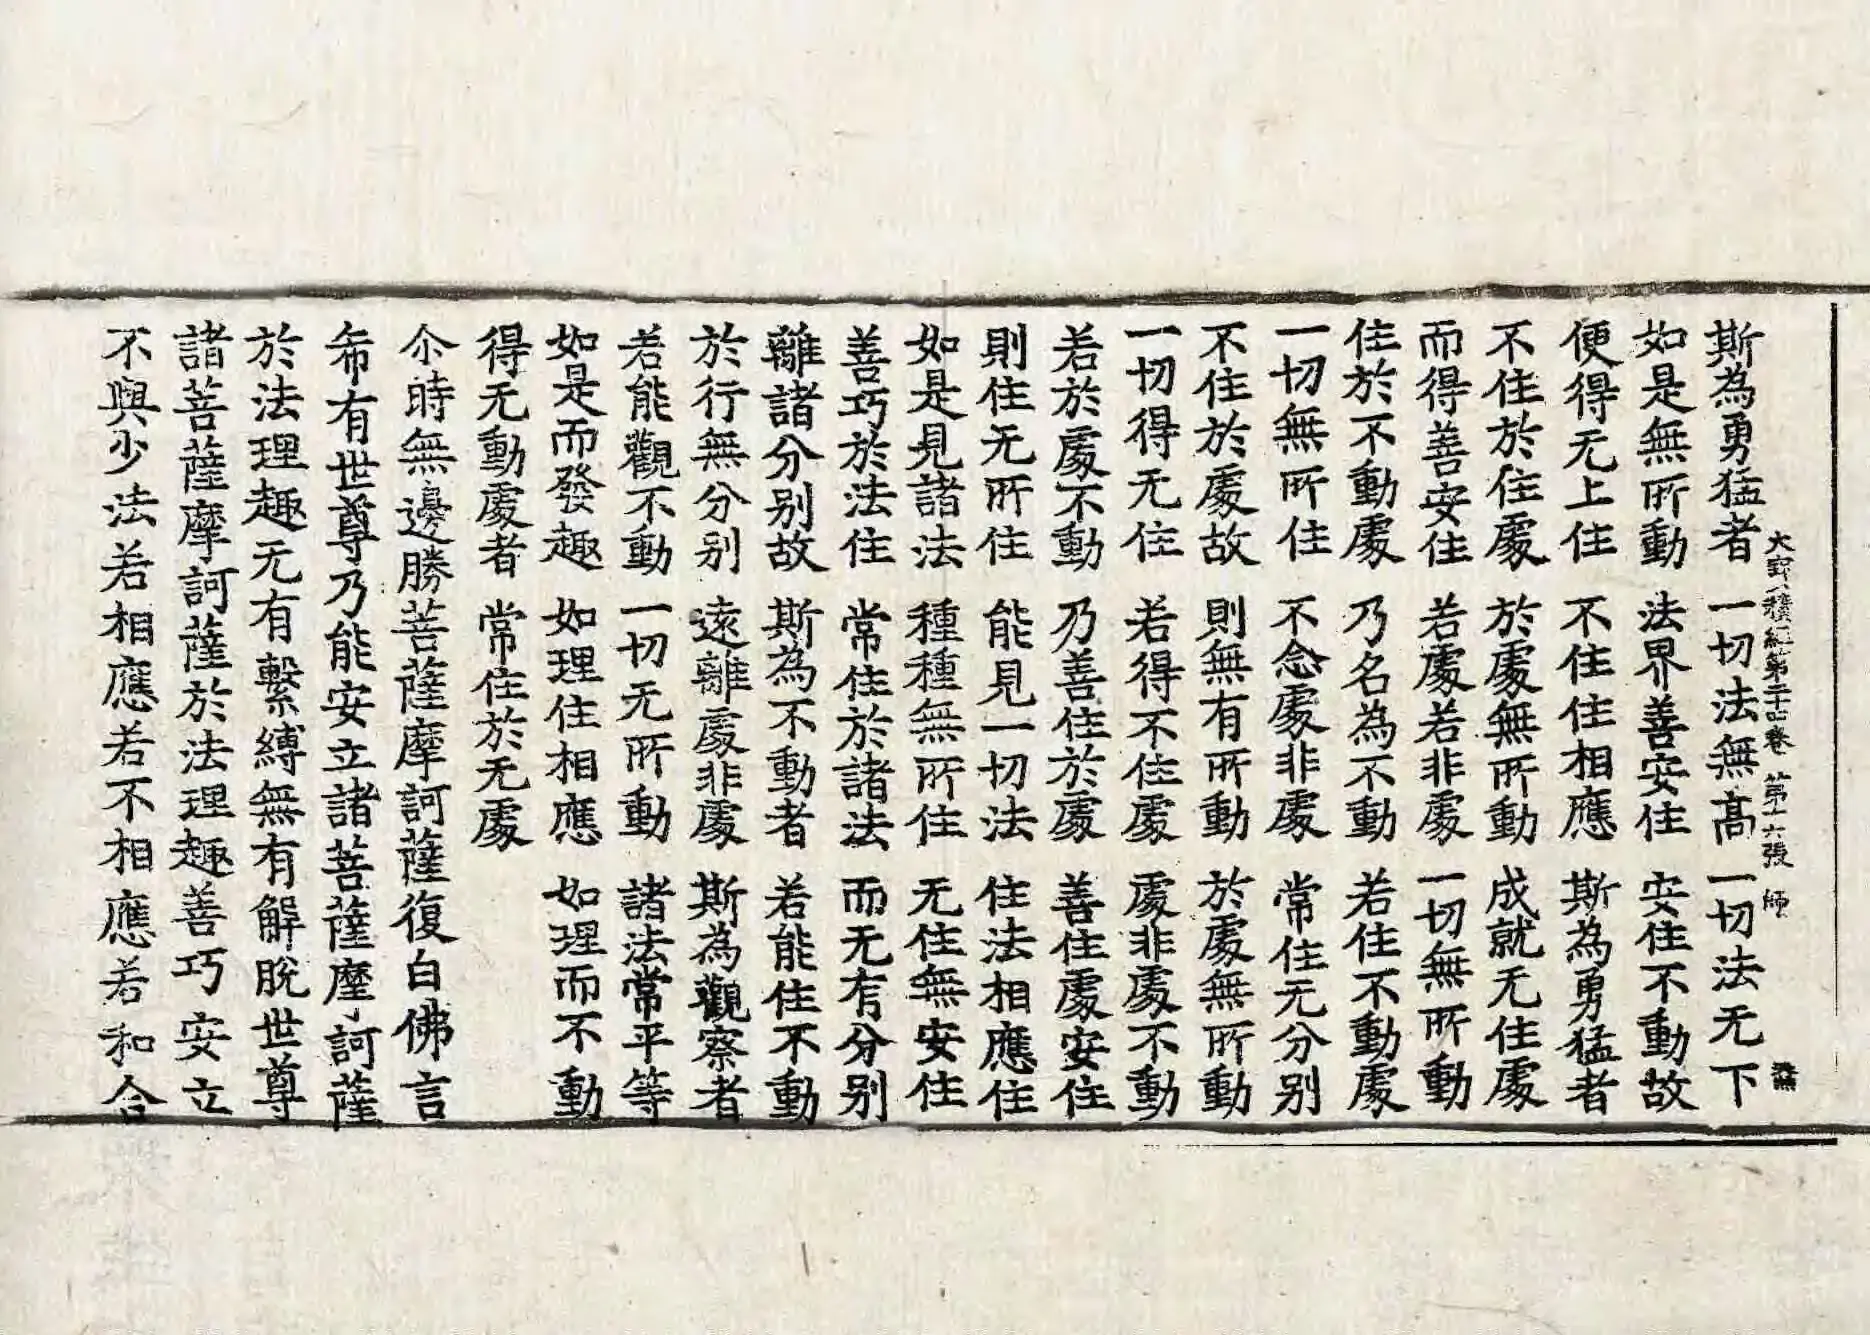 大寶積經第二十四卷 第十六張 師
斯為勇猛者 一切法無高 一切法无下
如是無所動 法界善安住 安住不動故
便得无上住 不住住相應 斯為勇猛者
不住於住處 於處無所動 成就无住處
而得善安住 若處若非處 一切無所動
住於不動處 乃名為不動 若住不動處
一切無所住 不念處非處 常住无分別
不住於處故 則無有所動 於處無所動
一切得无住 若得不住處 處非處不動
若於處不動 乃善住於處 善住處安住
則住无所住 能見一切法 住法相應住
如是見諸法 種種無所住 无住無安住
善巧於法住 常住於諸法 而无有分别
離諸分别故 斯為不動者 若能住不動
於行無分别 遠離處非處 斯為觀察者
若能觀不動 一切无所動 諸法常平等
如是而發趣 如理住相應 如理而不動
得无動處者 常住於无處
尒時無邊勝菩薩摩訶薩復白佛言
希有世尊乃能安立諸菩薩摩訶薩
於法理趣无有繫縛無有解脫世尊
諸菩薩摩訶薩於法理趣善巧安立
不與少法若相應若不相應若和合